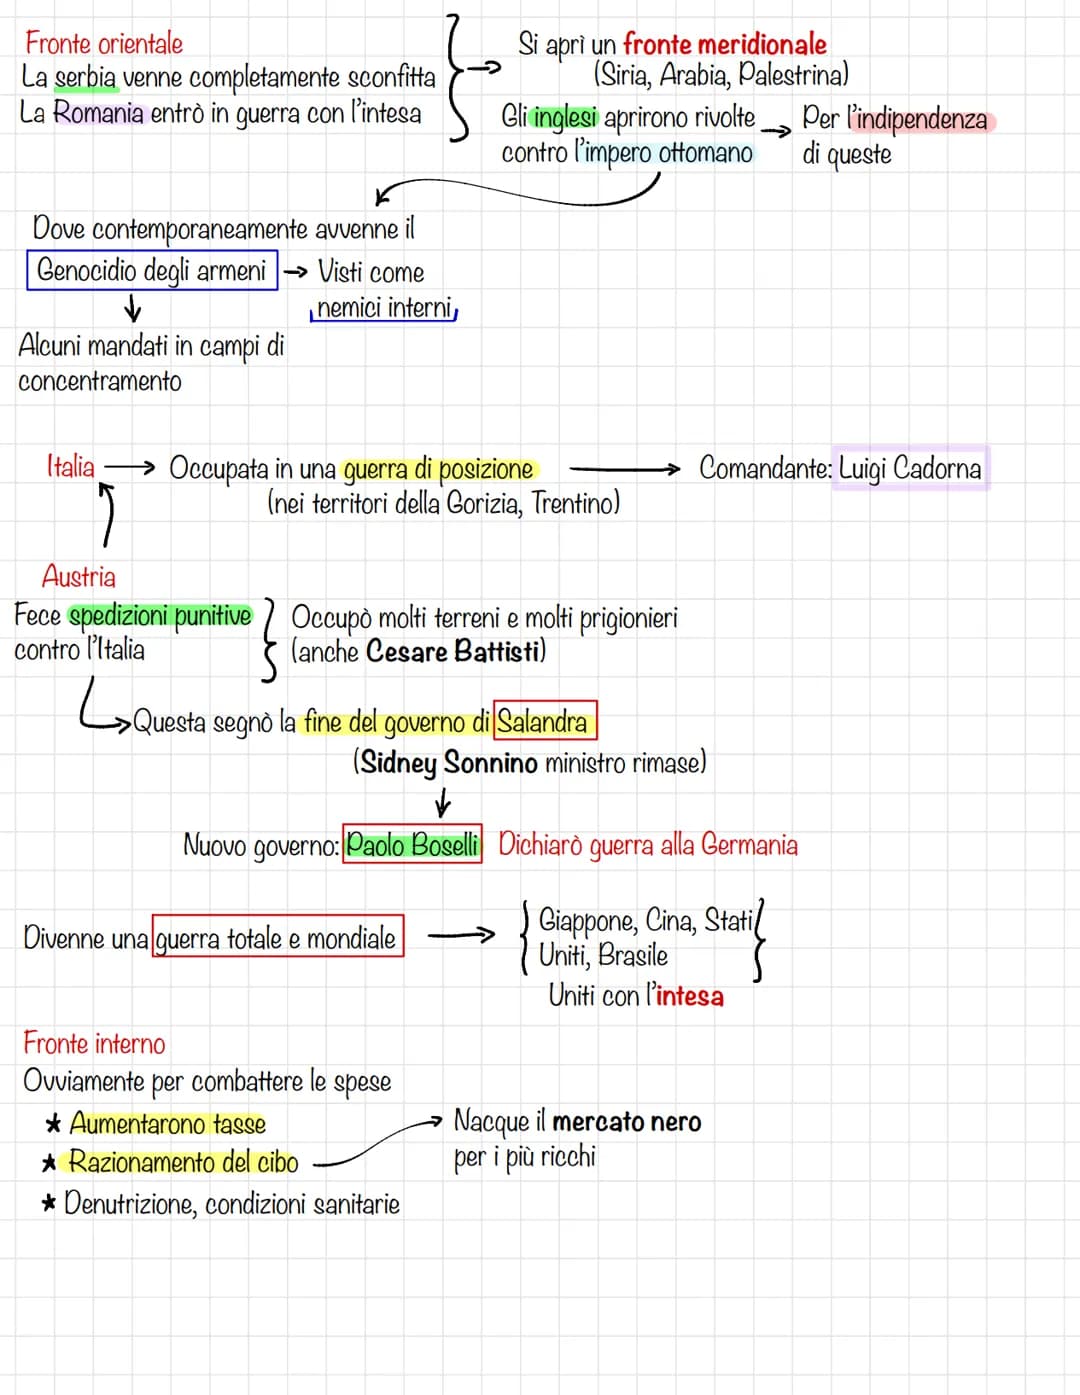 Fronte orientale
La serbia venne completamente sconfitta
La Romania entrò in guerra con l'intesa
Si aprì un fronte meridionale
(Siria, Arabia, Palestrina)
Gli inglesi aprirono rivolte
contro l'impero ottomano
Per l'indipendenza
di queste
Dove contemporaneamente avvenne il
Genocidio degli armeni → Visti come
nemici interni
Alcuni mandati in campi di
concentramento
Italia → Occupata in una guerra di posizione → Comandante: Luigi Cadorna
(nei territori della Gorizia, Trentino)
Austria
Fece spedizioni punitive
contro l'Italia
Occupò molti terreni e molti prigionieri
(anche Cesare Battisti)
Questa segnò la fine del governo di Salandra
(Sidney Sonnino ministro rimase)
Nuovo governo: Paolo Boselli Dichiarò guerra alla Germania
Divenne una guerra totale e mondiale
Giappone, Cina, Stati
Uniti, Brasile
Uniti con l'intesa
Fronte interno
Ovviamente per combattere le spese
★ Aumentarono tasse
★ Razionamento del cibo
★ Denutrizione, condizioni sanitarie
Nacque il mercato nero
per i più ricchi